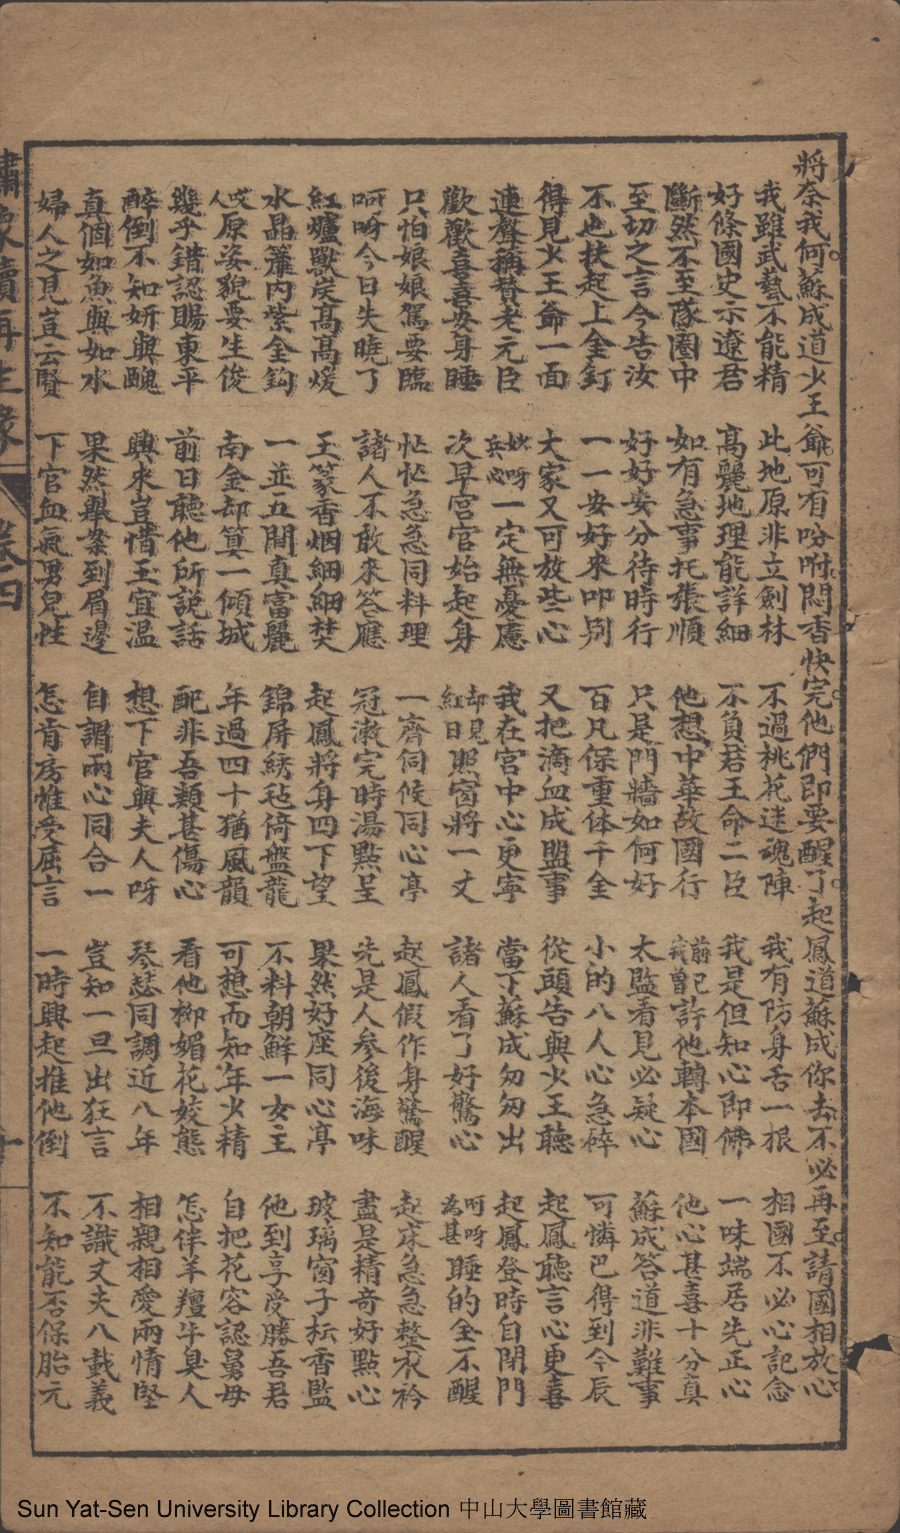 將奈我何蘇成道少王爺可有吩咐悶香快完他們即要醒了起鳳道蘇成你去不必再至請國相放心
我雖武藝不能精 此地原非立劍林 不過桃花迷魂陣 我有防身舌一根 相國不必心記念
好條國史示遼君 高麗地理能詳細 不負君王命二臣 我是但知心即佛 一味端居先正心
斷然不至隊圈中 如有急事托張順 他想中華故國行 前已許他轉本國 他心甚喜十分真
至切之言今告汝 好好安分待時行 只是門牆如何好 太監看見必疑心 蘇成答道非難事
不也扶起上金釘 一一安好來叩別 百凡保重体千金 小的八人心急碎 可憐巴得到今辰
得見少王爺一面 大家又可放些心 又把滴血成盟事 從頭告與少王聽 起鳳聽言心更喜
連聲稱賛老元臣 一定無憂慮 我在宮中心更寧 當下蘇成匆匆出 起鳳登時自閉門
歡歡喜喜安身睡 次早宮官始起身 却見紅日照窗將一丈 諸人看了好驚心 呵呀為甚睡的全不醒
只怕娘娘駕要臨 忙忙急急同料理 一齊伺候同心亭 起鳳假作身驚醒 起床急急整衣衿
呵呀今日失曉了 諸人不敢來答應 冠漱完時湯點呈 先是人參後海味 盡是精奇好點心
紅爐獸炭高高煖 王篆香烟細細焚 起鳳將身四下望 果然好座同心亭 玻璃窗子耘香監
水晶簾内紫金鈎 一並五間真富麗 錦屏綉毡倚盤龍 不料朝鮮一女主 他到享受勝吾君
哎人原姿貌要生俊 南金却算一傾城 年過四十猶風韻 可想而知年少精 自把花容認舅母
幾乎錯認賜東平 前日聽他所説話 配非吾類甚傷心 看他柳媚花姣態 怎伴羊羶牛臭人
醉倒不知妍與醜 興來豈惜玉宜温 想下官與夫人呀 琴瑟同調近八年 相親相愛兩情堅
真個如魚與如水 果然舉案到眉邊 自謂兩心同合一 豈知一旦出狂言 不識丈夫八載義
婦人之見豈云賢 下官血氣男兒性 怎肯房帷受屈言 一時興起推他倒 不知能否保胎元
繡象續再生緣 卷四
十一
Sun Yat-Sen University Library Collection 中山大學圖書館藏